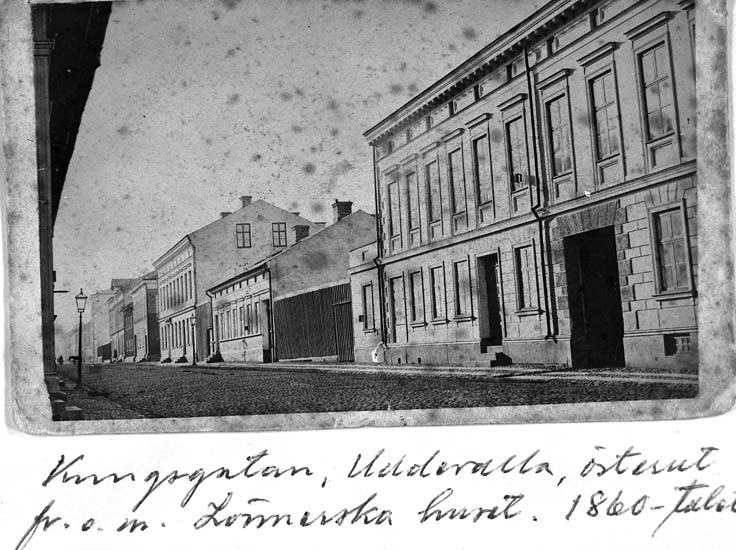 Kungsgatan, Uddevalla, österut
fr. o. m. Lönnerska huset. 1860-talet